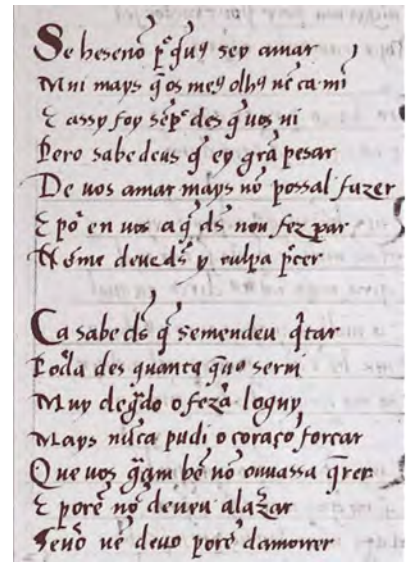 Se beseno p̃ q̃uꝯ sey amar
Mui mays q̃os meꝯ olhꝯ nẽ ca mĩ
E assy foy sẽp̃ des q̃ uos ui
Pero sabe deus q̃ ey grã pesar
De uos amar mays nõ possal fazer
E põ en uos a q̃ d̃s non fez par
Nõ me deue d̃s y culpa
Ca sabe d̃s q̃ semendeu q̃tar
des quanto q̃uo serui
Muy o feza loguy
Mays nũca pudi o coraço forcar
Que uos bẽ nõ ouuassa q̃rer
E porẽ nõ deueu alazar
Senõ nẽ deuo porẽ damorrer